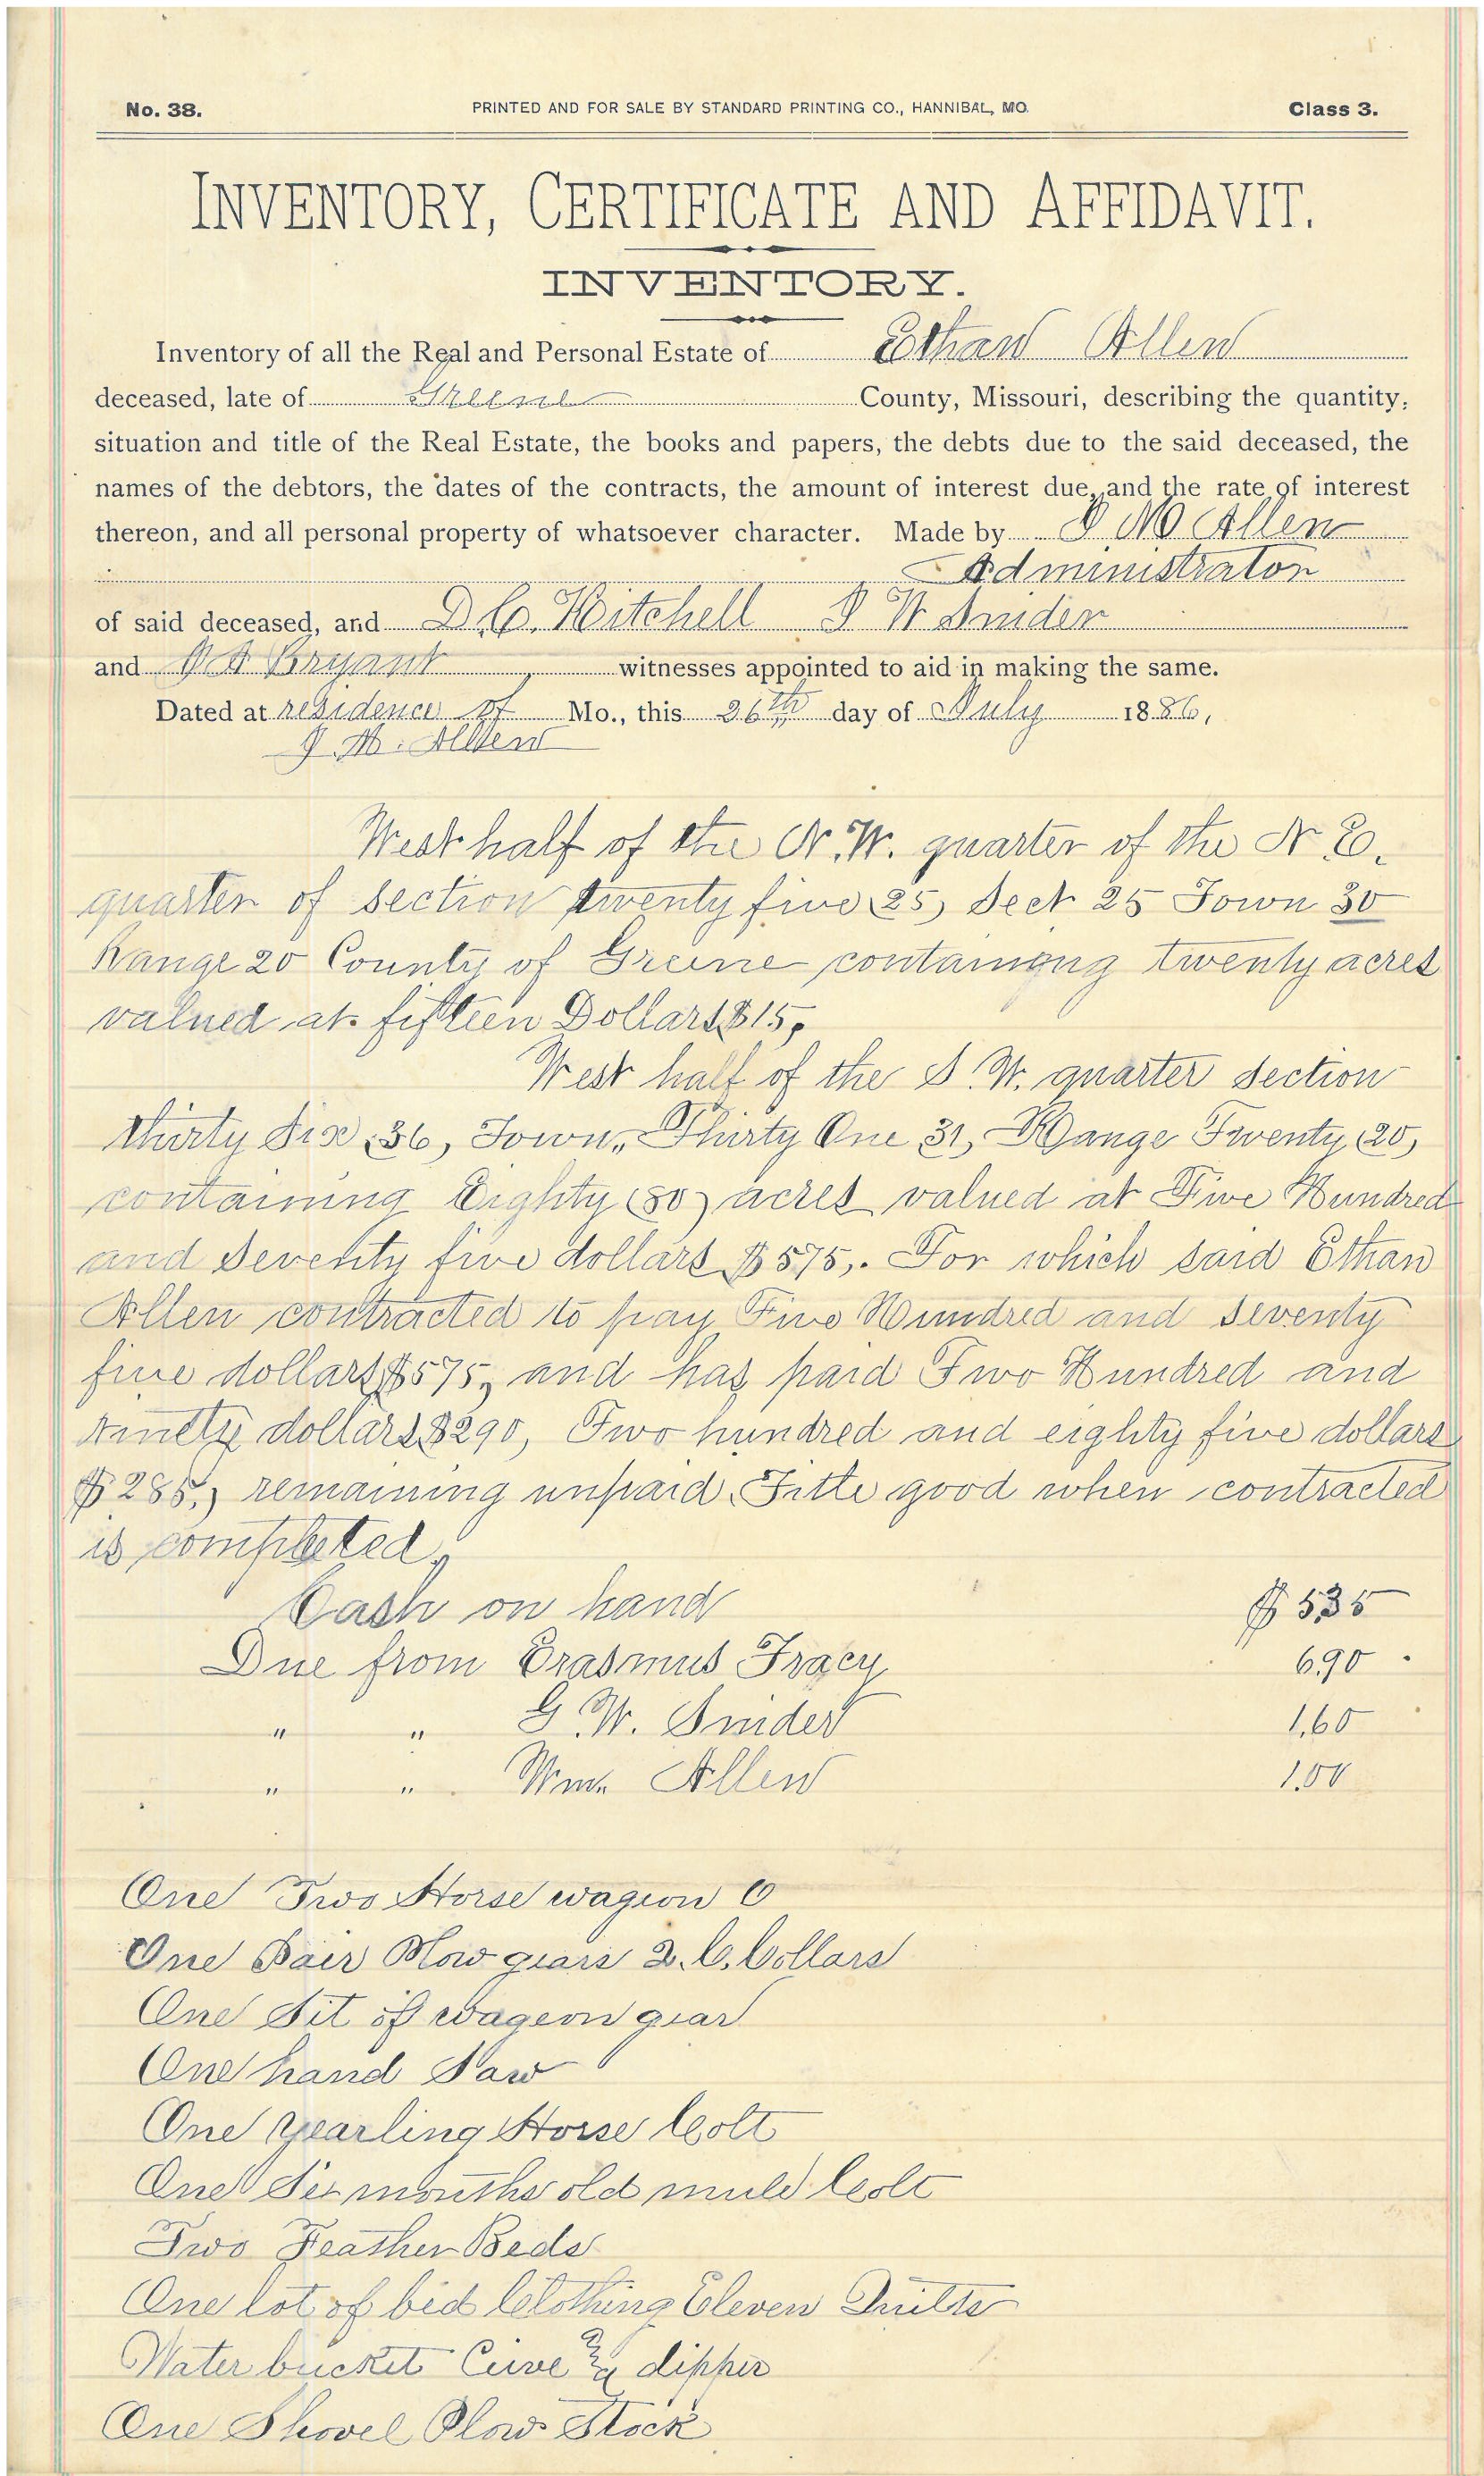 No. 38. PRINTED AND FOR SALE BY STANDARD PRINTING CO., HANNIBAL, MO. Class 3.
INVENTORY, CERTIFICATE AND AFFIDAVIT.
INVENTORY.
Inventory of all the Real and Personal Estate of Ethan Allen
deceased, late of Greene County, Missouri, describing the quantity,
situation and title of the Real Estate, the books and papers, the debts due to the said deceased, the
names of the debtors, the dates of the contracts, the amount of interest due, and the rate of interest
thereon, and all personal property of whatsoever character. Made by M Allen
Administrator
of said deceased, and D. C. Hitchell W Snider
and Bryant witnesses appointed to aid in making the same.
Dated at residence of Mo., this 26th day of July 1886,
M. Allen
West half of the N. W. quarter of the N. E.
quarter of section twenty five (25) Sect 25 Town 30
Range 20 County of Greene containing twenty acres
valued at fifteen Dollars $15,
West half of the S. W. quarter section
thirty six (36), Town, Thirty One 31, Range Twenty (20)
containing Eighty (80) acres valued at Five Hundred
and seventy five dollars $575,. For which said Ethan
Allen contracted to pay Five Hundred and seventy
five dollars $575, and has paid Two Hundred and
Ninety dollars $290, Two hundred and eighty five dollars
$285,) remaining unpaid. Title good when contracted
is completed.
Cash on hand $ 5.35
Due from Erasmus Tracy 6.90
" " G. W. Snider 1.60
" " Wm. Allen 1.00
One Two Horse wageon
One Pair Plow gears 2. C. Collars
One Sit of wageon gear
One hand Saw
One yearling Horse Colt
One Six months old mule Colt
Two Feather Beds
One lot of bed Clothing Eleven Quilts
Water bucket & dipper
One Shovel Plow Stock